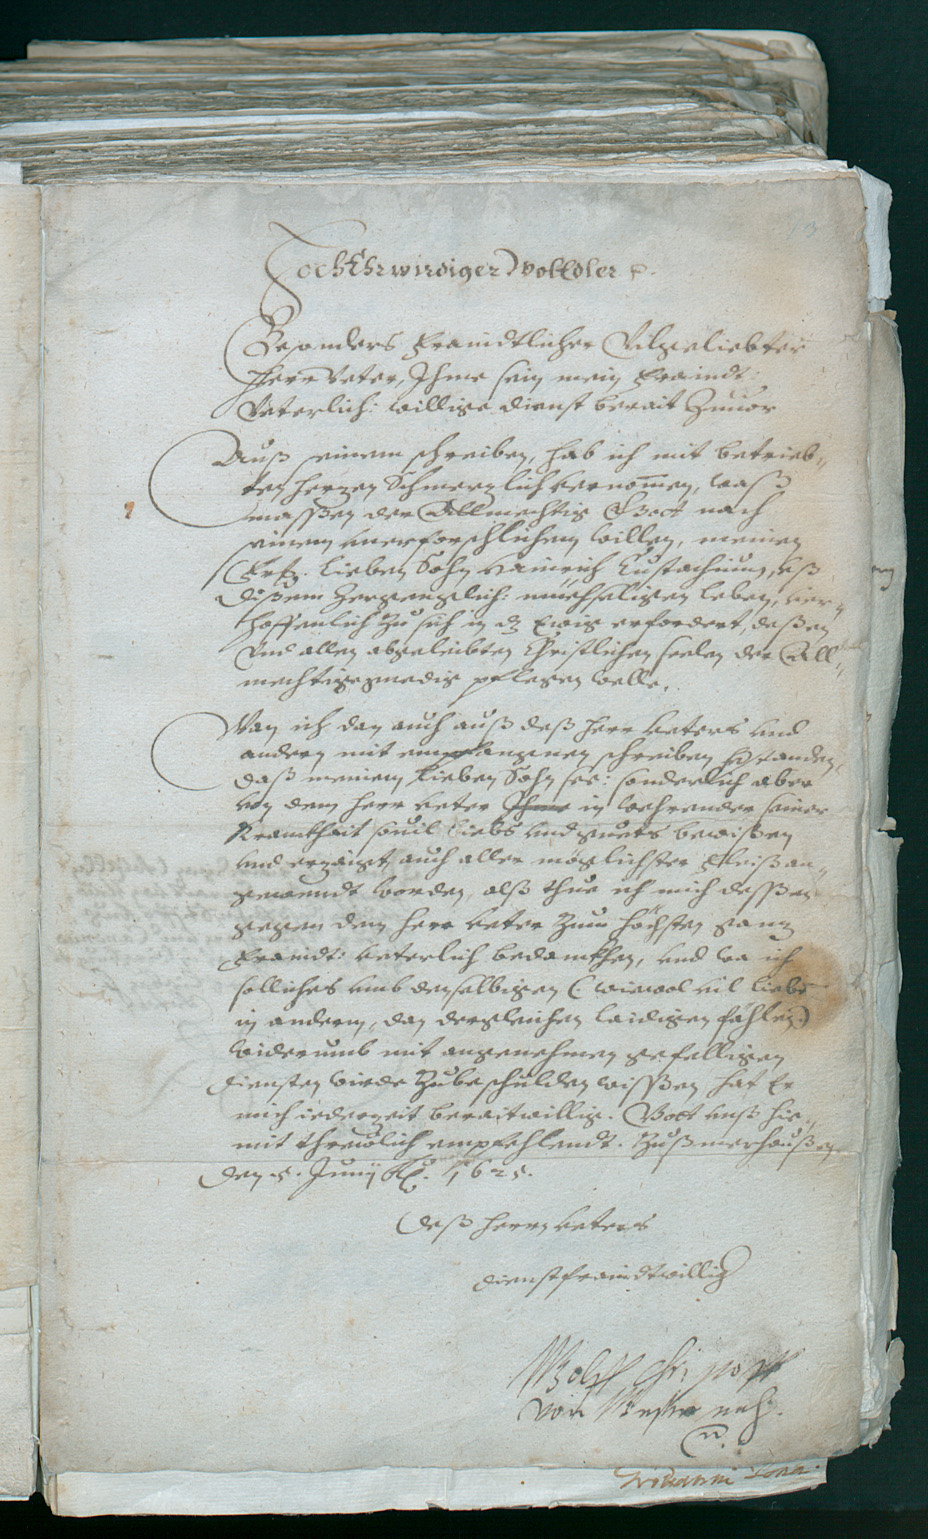 HochEhrwirdiger WolEdler p.
Besonders Fraindtlicher Vilgeliebter
Herr Veter, Ihme sein mein fraindt:
Veterlich: willige dienst berait Zuuor
Auß seinem schreiben, hab ich mit betrieb„
ten herzen Schmerzlich vernomen, waß
massen der Allmechtig Gott nach
seinem vnerforschlichem willen, meinen
lieben Sohn Hainrich Eustachium, uß
disem Zergenglich: müehseligen leben, ver„
hoffenlich Zu sich in d Ewig erfordert, deßen
Vnd allen abgeleibten Christlichen seelen der All„
mechtig genedig pflegen welle.
Wan ich dan auch auß deß herr veters vnd
andern mit empfangenen schreiben verstanden,
daß meinem lieben Sohn see: sonderlich aber
von dem herr veter Ihme in wehrender seiner
Krankhait souil liebs vnd guets bewisen
vnd erzaigt, auch aller möglichster fleiß an„
gewendt worden, alß thue ich mich dessen
gegen dem herr veter Zum höchsten ganz
fraindt: veterlich bedankhen, vnd wa ich
solliches vmb denselbigen (: wiewol vil lieber
in andern, dan dergleichen laidigen fählen:)
widerumb mit angenehmen gefelligen
diensten wirde Zubeschulden wissen, hat Er
mich iederzeit beraitwillig. Gott vnß hie„
mit threwlich empfehlendt. Zußmerhaußen
den 5. Junij Aõ. 1625.
Deß herrn veters
dienstfraindtwillig
Wolff Christoff
von Westernach